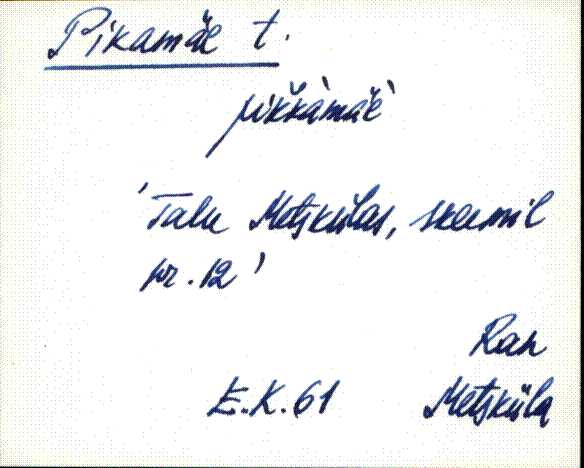 Pikamäe t.
pikkàmäè
'Talu Metskülas, skeemil
nr. 12'
Ran
E.K. 61 Metsküla